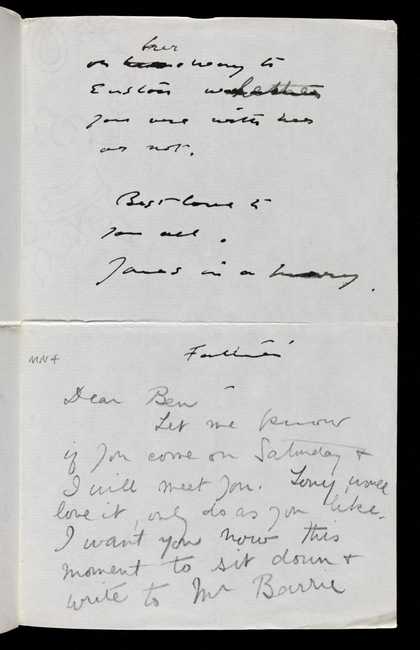 her
on away to
Euston whether
you are with her
or not.
Best love to
you all.
Yours in a hurry.
Father
MN4
Dear Ben
Let me know
if you come on Saturday &
I will meet you.
love it, only do as you like.
I want you now this
moment to sit down &
write to Mr Barrie